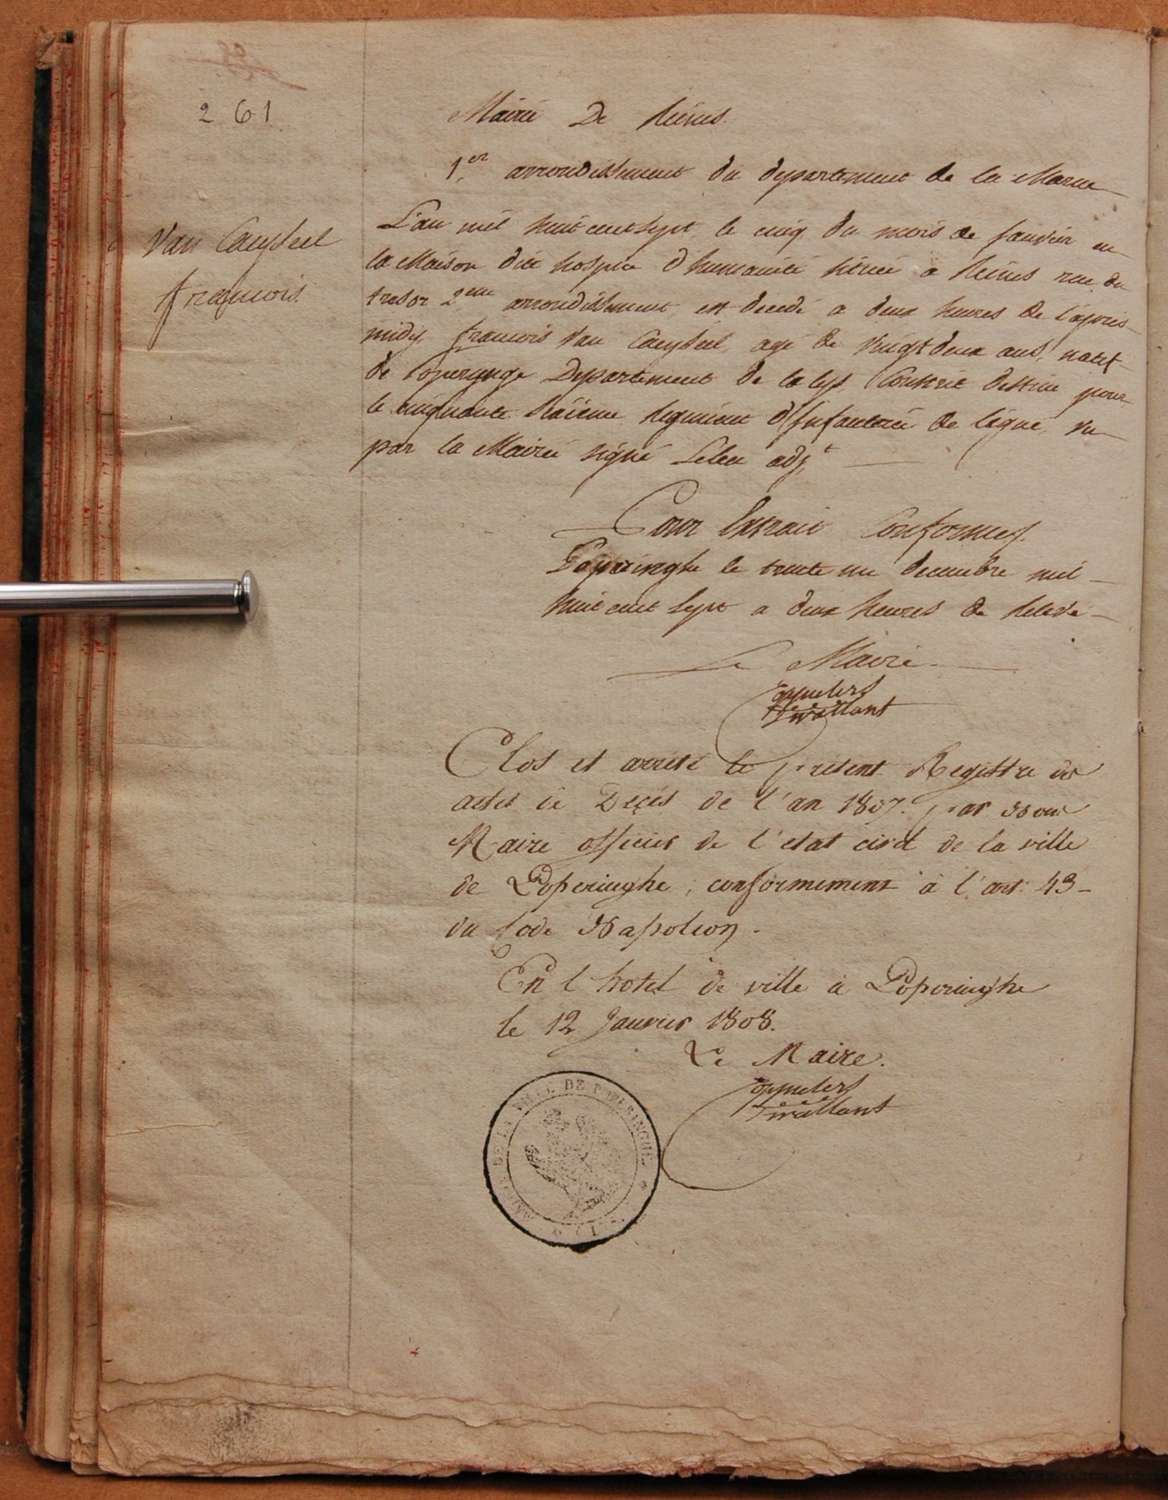 261
Mairie De Reims
1.er arrondissement du departement de la Marne
Van Cayseel
françois
L'an mil huit cent Sept le cinq du mois de Janvier en
la Maison dite hospice d'humanité située a Reims rue du
tresor 2eme arrondissement, est decedé a deux heures de l'après
midy françois Van Cayseel agé de vingt deux ans, natif
de Poperynge Departement de la lys Conscrit destiné pour
le cinquante Regiment d'Infanterie de ligne, vu
par la Mairie signé adj.t
Pour Extrait Conforme
Poperinghe le trente un decembre mil
huit cent Sept a deux heures de Relevé
Le Maire
Clos et arreté le présent Registre des
actes de Décès de l'an 1807. par Nous
Maire officier de l'etat civil de la ville
de Poperinghe, conformement à l'art. 43
du Code Napoleon.
En l'hotel de ville à Poperinghe
le 12 Janvier 1808.
Le Maire.
MAIRIE DE LA VILLE DE POPERINGHE